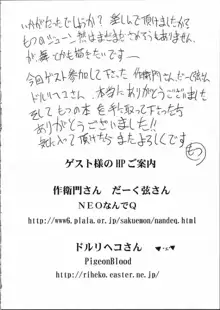 いかがだったでしょうか？楽しんで頂けましたか？
もつのジュン
が、描いてかでも描きたいです…
今回ゲスト参加して下さった 作衛門さん、だーく弦さん、
ドルリヘコさん、本当にありがとうございました
そして もつの本を手に取って下さった方
ありがとうございました!!
気に入って頂けたらまたよろしくです
ゲスト様のHPご案内
作衛門さん だーく弦さん
NEOなんでQ
http://www6.plala.or.jp/sakuemon/nandeq.html
ドルリヘコさん
PigeonBlood
http://riheko.easter.ne.jp/